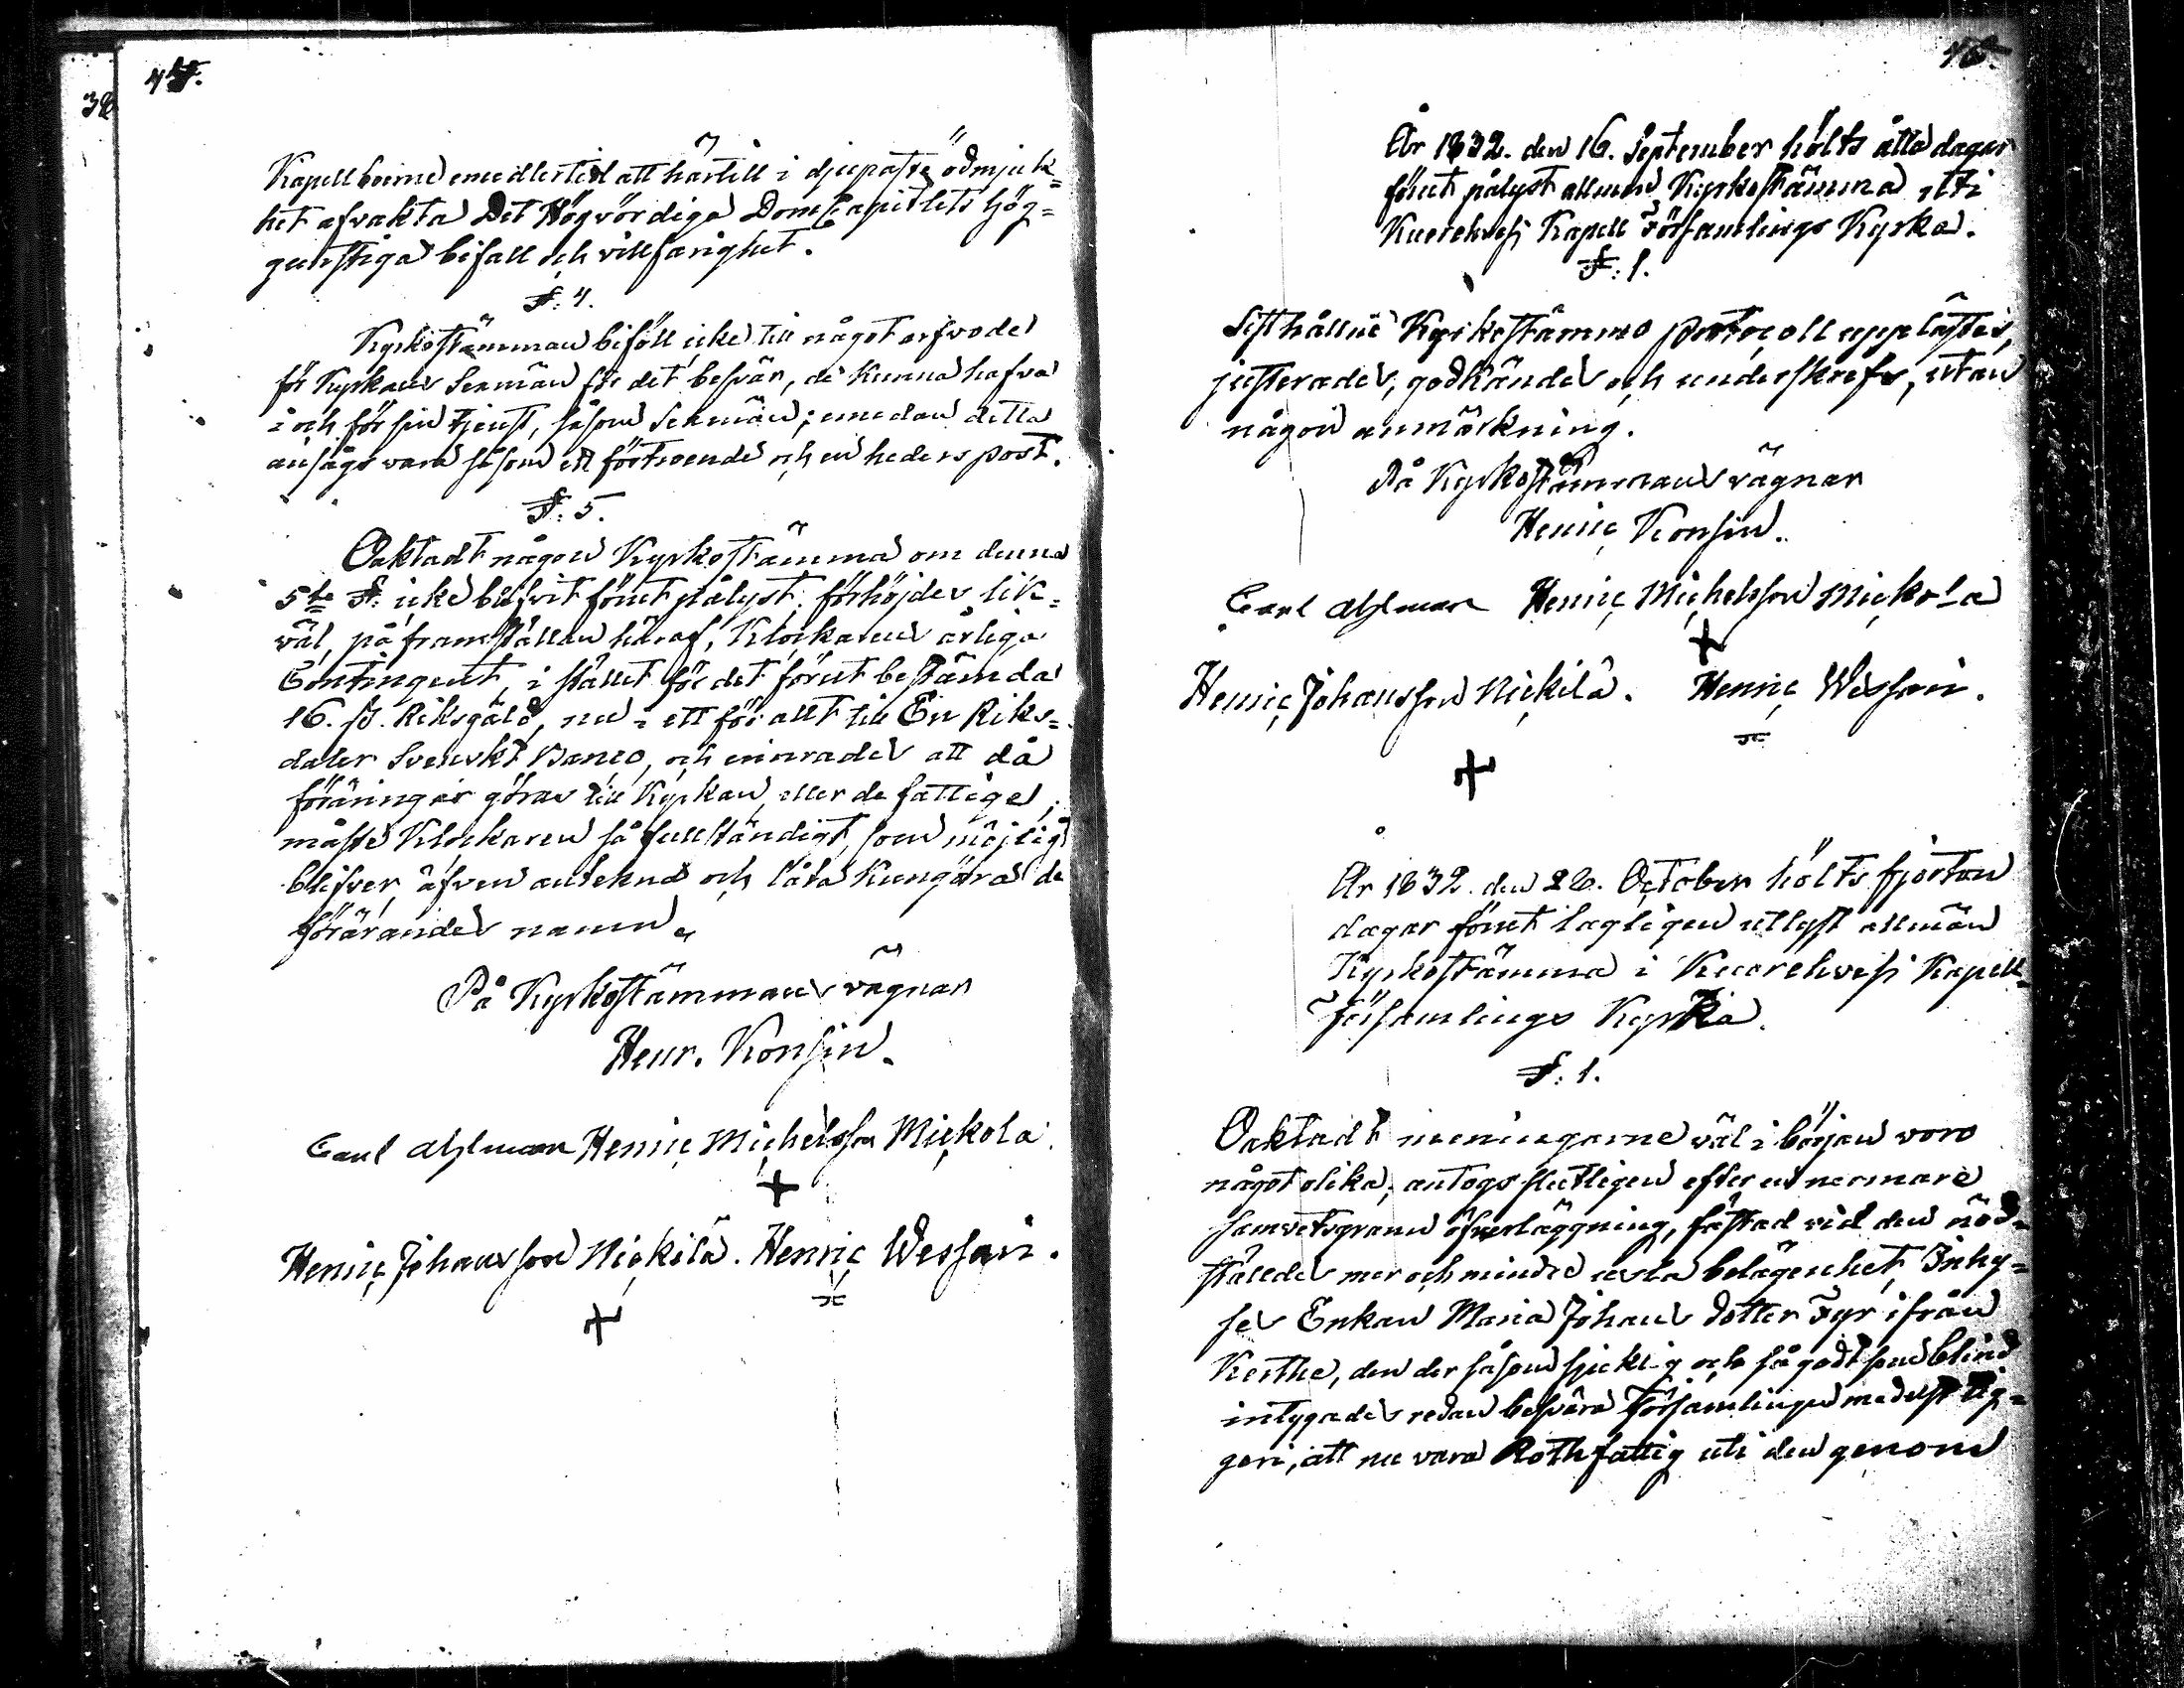 Kapellboerne emedlertid att härtill i djupaste ödmjuk=
het afvakta Det Högvördiga DomCapitlets hög=
gunstiga bifall och villfarighet.
§: 4.
Kyrkostämman biföll icke till något arfvode
för Kyrkans Sexmän för det besvär, de kunna hafva
i och för sin tjenst, såsom Sexmän; emedan detta
ansågs vara såsom ett förtroende och en hederspost.
§: 5.
Oaktadt någon Kyrkostämma om denna
5te §: icke blifvit förut pålyst, förhöjdes lik=
väl, på framställan häraf, Klockarens årliga
Contingent, i stället för det förut bestämda
16. s. Riksgäld, nu i ett för allt till En Riks=
daler Svenskt Banco, och einrades att då
föräringar göras till Kyrkan, eller de fattige,
måste Klockaren så fullständigt, som möjligt
blifver, äfven antekna och låta kungöra de
förärandes namn.
På Kyrkostämmans vägnar
Henr. Konsin.
Carl Ahlman Henric Michelsson Mickola
+
Henric Johansson Nickilä. Henric Wessari.
+
År 1832. den 16. September hölts åtta dagar
förut pålyst allmän Kyrkostämma uti
Kuorehvesi Kapell Församlings Kyrka.
§: 1.
Sisthållne Kyrkostämmo protocoll upplästes,
justerades, godkändes och underskrefs, utan
någon anmärkning.
På Kyrkostämmans vägnar
Henric Konsin.
Carl Ahlman Henric Michelsson Mickola
+
Henric Johansson Nickilä. Henric Wessari.
+
År 1832. den 28. October hölts fjorton
dagar förut lagligen utlyst allmän
Kyrkostämma i Kuorehvesi Kapell=
Församlings Kyrka.
§: 1.
Oaktadt meningarne väl i början voro
något olika, antogs slutligen efter en nermare
samvetsgrann öfverläggning, fästad vid den nöd=
ställdes mer och mindre usla belägenhet, Inhy=
ses Enkan Maria Johans dotter Fyr ifrån
Keithe, den der såsom sjuklig och så godt som blind
intygades redan besvära Församlingen medelst tig=
geri, att nu vara Rothfattig uti den genom